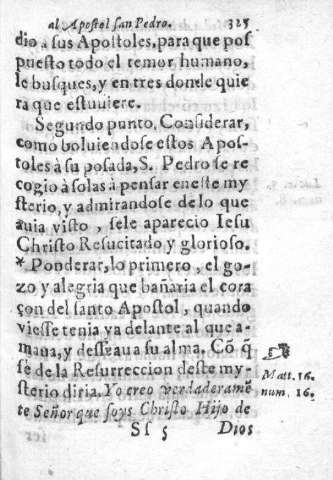 al Apostol san Pedro. 325
dio à sus Apostoles, para que pos
puesto todo el temor humano,
le busques, y en tres donde quie
ra que estuuiere.
Segundo punto, Considerar,
como boluiendose estos Apos-
toles à su posada, S. Pedro se re
cogio à solas à pensar en este my
sterio, y admirandose de lo que
auia visto, sele aparecio Iesu
Christo Resucitado y glorioso.
* Ponderar, lo primero, el go-
zo y alegria que bañaria el cora
çon del santo Apostol, quando
viesse tenia ya delante al que a-
maua, y desseaua su alma. Cõ q̃
fe de la Resurreccion deste my-
sterio diria. Yo creo verdaderamẽ
te Señor que soys Christo Hijo de
Matt. 16.
num. 16.
Sſ 5 Dios